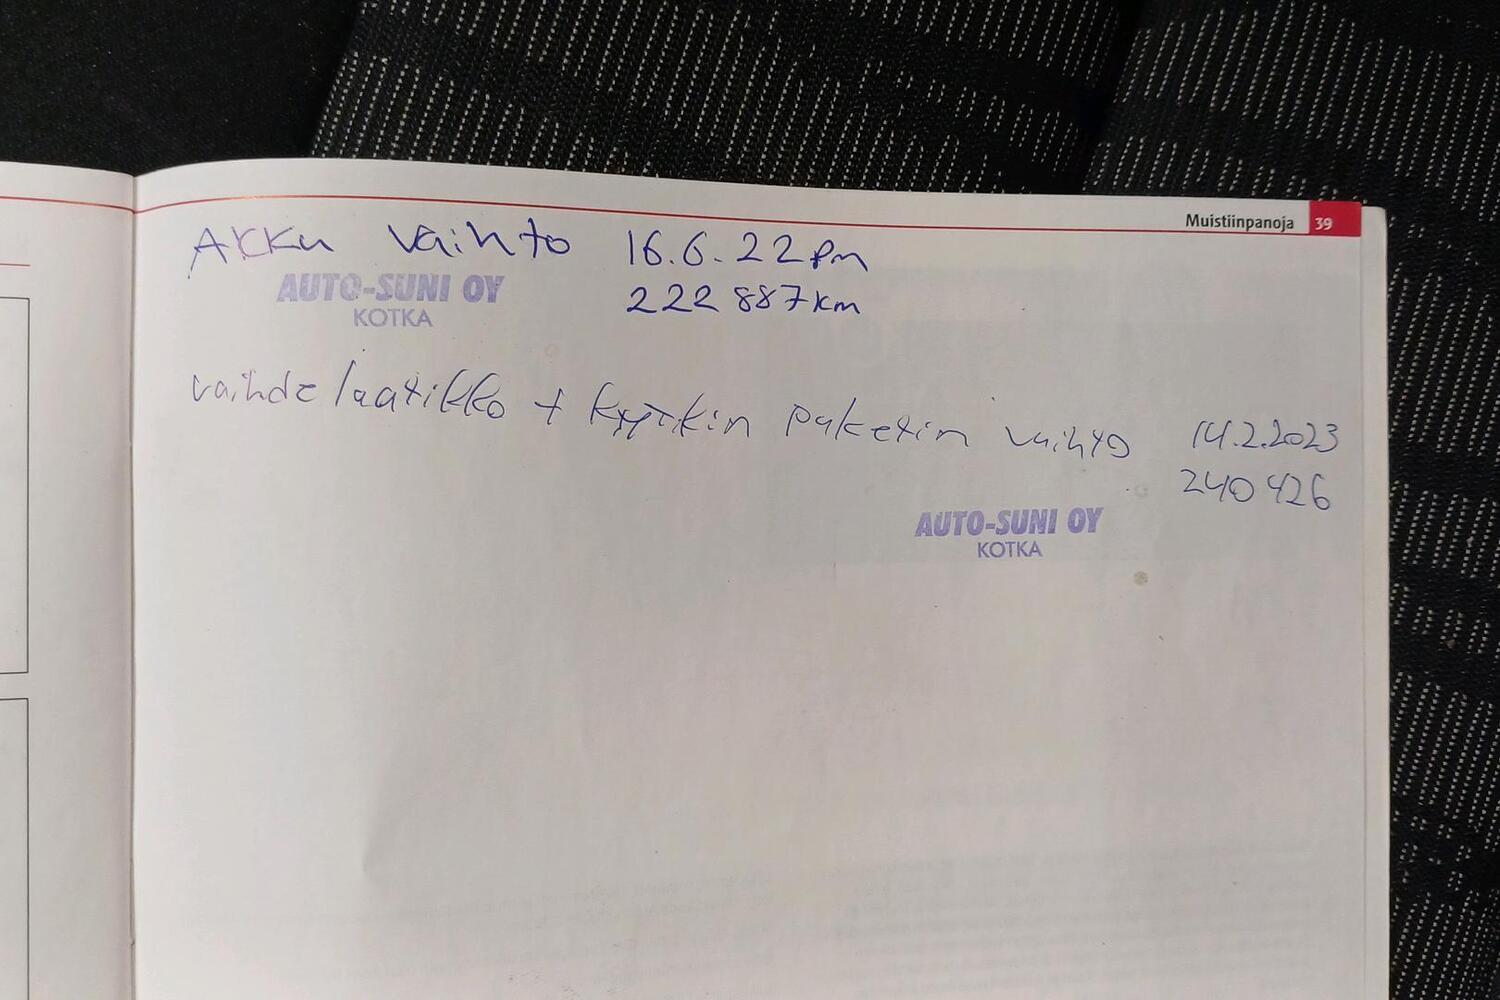 Muistiinpanoja 39
Akku vaihto 16.6.22 pm
AUTO-SUNI OY
KOTKA
222 887 km
vaihdelaatikko + kytkin paketin vaihto 14.2.2023
240 426
AUTO-SUNI OY
KOTKA